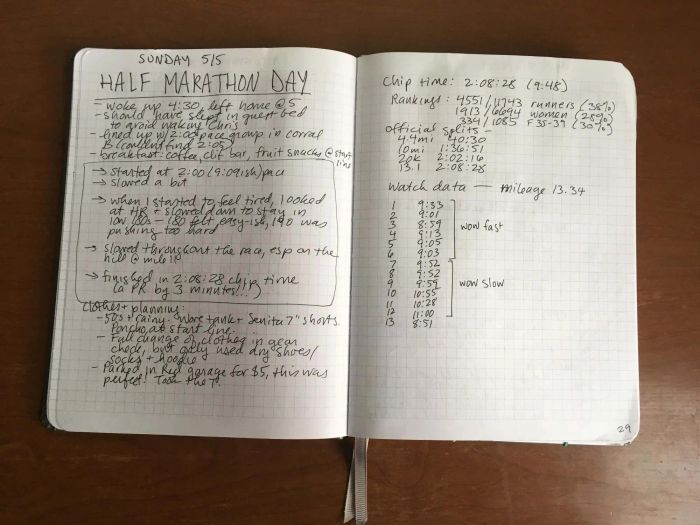 SUNDAY 5/5
HALF MARATHON DAY
- woke up 4:30, left home @ 5
- should have slept in guest bed
to avoid waking Chris
- lined up w/ 2:00 pace group in corral
B (couldn't find 2:05)
- breakfast: coffee, clif bar, fruit snacks @ start
line
→ started at 2:00 (9:09ish) pace
→ slowed a bit
→ when I started to feel tired, looked
at HR + slowed down to stay in
low 180s - 180 felt easy-ish, 190 was
pushing too hard
→ slowed throughout the race, esp on the
hill @ mile 11
→ finished in 2:08:28 chip time
(a PR by 3 minutes!!!)
Clothes + planning:
- 50s + rainy. Wore tank + Senita 7" shorts.
Poncho at start line.
- Full change of clothes in gear
check, but only used dry shoes/
socks + hoodie
- Parked in Red garage for $5, this was
perfect! Took the T.
Chip time: 2:08:28 (9:48)
Rankings: 4551/11943 runners (38%)
1913/6694 women (28%)
334/1085 F35-39 (30%)
Official splits -
4.4mi 40:30
10mi 1:36:51
20k 2:02:16
13.1 2:08:28
Watch data — mileage 13.34
1 9:33
2 9:01
3 8:59
4 9:13
5 9:05
6 9:03
wow fast
7 9:52
8 9:52
9 9:59
10 10:55
11 10:28
12 11:00
wow slow
13 8:51
29